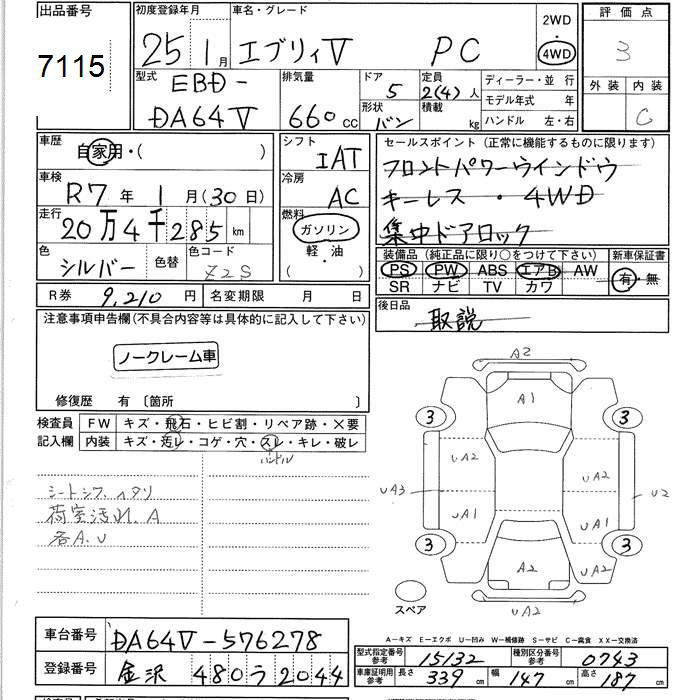 出品番号
7115
初度登録年月
25 1月
車名・グレード
エブリィV PC
2WD
4WD
評価点
3
外装 内装
C
型式
EBD-
DA64V
排気量
660 CC
ドア
5
形状
バン
定員
2(4)人
積載
kg
ディーラー・並行
モデル年式 年
ハンドル 左・右
車歴
自家用・( )
車検
R7年 1月(30日)
走行
20万4千285 km
色
シルバー
色替
色コード
Z2S
シフト
IAT
冷房
AC
燃料
ガソリン
軽・油
( )
セールスポイント(正常に機能するものに限ります)
フロントパワーウインドウ
キーレス・4WD
集中ドアロック
装備品(純正品に限り○をつけて下さい)
PS PW ABS エアB AW
SR ナビ TV カワ
新車保証書
有・無
R券 9,210円
名変期限 月 日
後日品
取説
注意事項申告欄(不具合内容等は具体的に記入して下さい)
ノークレーム車
修復歴 有〔箇所 〕
検査員
記入欄
FW キズ・飛石・ヒビ割・リペア跡・×要
内装 キズ・汚レ・コゲ・穴・スレ・キレ・破レ
ハンドル
荷室汚れ.A
各A.U
A2
A1
3 3
UA2
UA2
UA3
U2
UA1
UA1
3 3
A2
UA2
UA2
スペア
A－キズ E－エクボ U－凹み W－補修跡 S－サビ C－腐食 XX－交換済
車台番号
DA64V-576278
登録番号
金沢 480う2044
型式指定番号
参考
15132
種別区分番号
参考
0743
車庫証明用
参考
長さ 339cm
幅 147cm
高さ 187cm